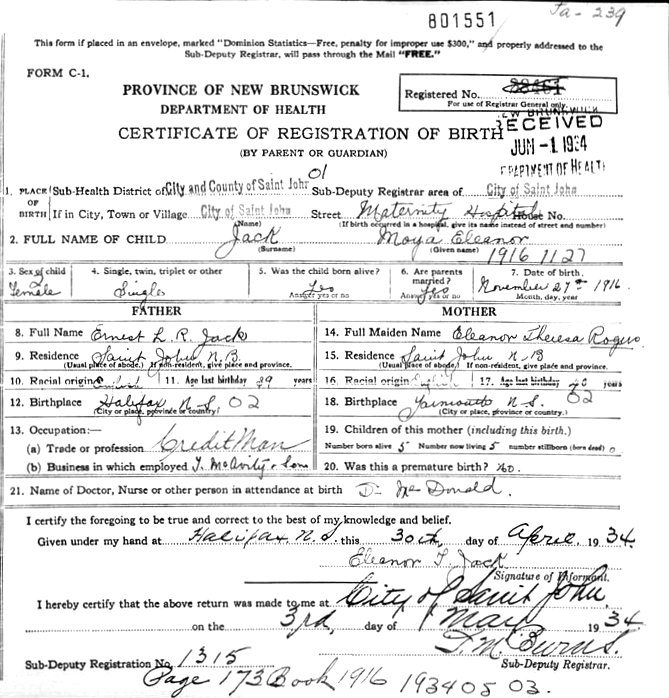 801551
Ja - 239
This form if placed in an envelope, marked "Dominion Statistics—Free, penalty for improper use $300," and properly addressed to the
Sub-Deputy Registrar, will pass through the Mail "FREE."
FORM C-1.
PROVINCE OF NEW BRUNSWICK
DEPARTMENT OF HEALTH
CERTIFICATE OF REGISTRATION OF BIRTH
(BY PARENT OR GUARDIAN)
Registered No.
For use of Registrar General only
NEW BRUNSWICK
RECEIVED
JUN -1 1934
DEPARTMENT OF HEALTH
01
1. PLACE OF BIRTH Sub-Health District of City and County of Saint John Sub-Deputy Registrar area of City of Saint John
If in City, Town or Village City of Saint John Street Maternity Hospital House No.
(Name) (If birth occurred in a hospital, give its name instead of street and number)
2. FULL NAME OF CHILD Jack Moya Eleanor
(Surname) (Given name) 1916 11 27
3. Sex of child 4. Single, twin, triplet or other 5. Was the child born alive? 6. Are parents married? 7. Date of birth.
Female Single Yes Yes November 27th 1916.
Answer yes or no Answer yes or no Month, day, year
FATHER MOTHER
8. Full Name Ernest L. R. Jack 14. Full Maiden Name Eleanor Theresa Rogers
9. Residence Saint John N.B. 15. Residence Saint John N-B
(Usual place of abode.) If non-resident, give place and province. (Usual place of abode.) If non-resident, give place and province.
10. Racial origin English 11. Age last birthday 39 years 16. Racial origin English 17. Age last birthday years
12. Birthplace Halifax N.S. 02 18. Birthplace Yarmouth N.S. 02
(City or place, province or country) (City or place, province or country.)
13. Occupation:— 19. Children of this mother (including this birth.)
(a) Trade or profession Credit Man Number born alive 5 Number now living 5 number stillborn (born dead) 0
(b) Business in which employed T. McAvity & Son 20. Was this a premature birth? No.
21. Name of Doctor, Nurse or other person in attendance at birth Dr McDonald.
I certify the foregoing to be true and correct to the best of my knowledge and belief.
Given under my hand at Halifax N.S. this 30th day of April 1934.
Eleanor T. Jack
Signature of Informant.
I hereby certify that the above return was made to me at City of Saint John
on the 3rd day of May 1934
T. M. Burns.
Sub-Deputy Registrar.
Sub-Deputy Registration No. 1315
Page 173 Book 1916 1934 05 03.